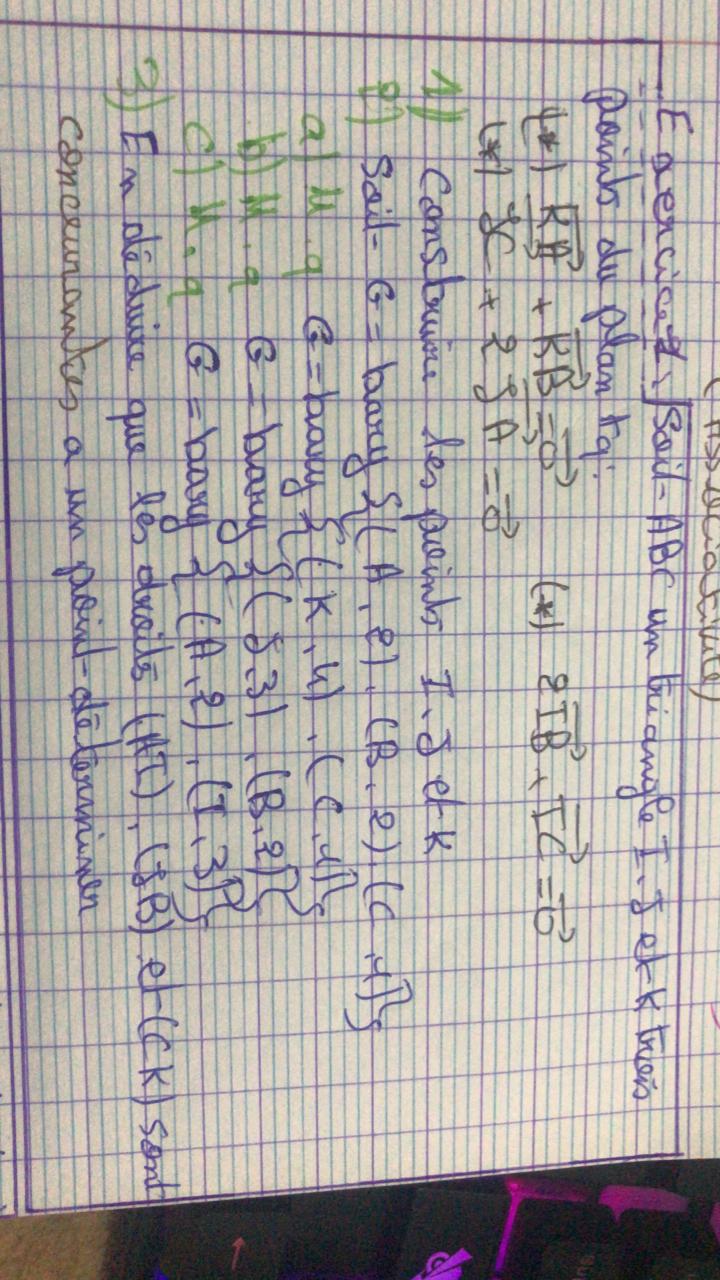 (Associativité)
Exercice 1: Soit ABC un triangle I.J et K trois
points du plan tq:
(*) KA + KB = 0 (*) 2IB + IC = 0
(*) JC + 2JA = 0
1) Construire les points I.J et K
2) Soit G = bary {(A,2).(B,2).(C,1)}
a) M.q G = bary {(K,4).(C,1)}
b) M.q G = bary {(J,3).(B,2)}
c) M.q G = bary {(A,2).(I,3)}
3) En déduire que les droites (AI).(JB) et (CK) sont
concourantes a un point déterminer